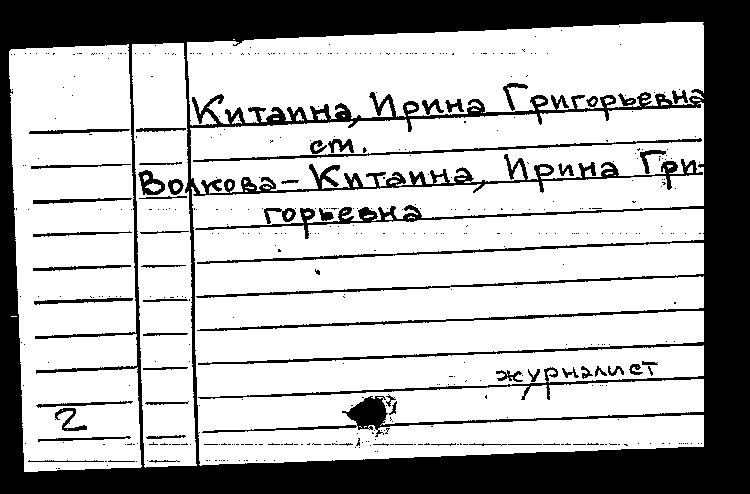 Китаина, Ирина Григорьевна
см.
Волкова-Китаина, Ирина Гри-
горьевна
журналист
2